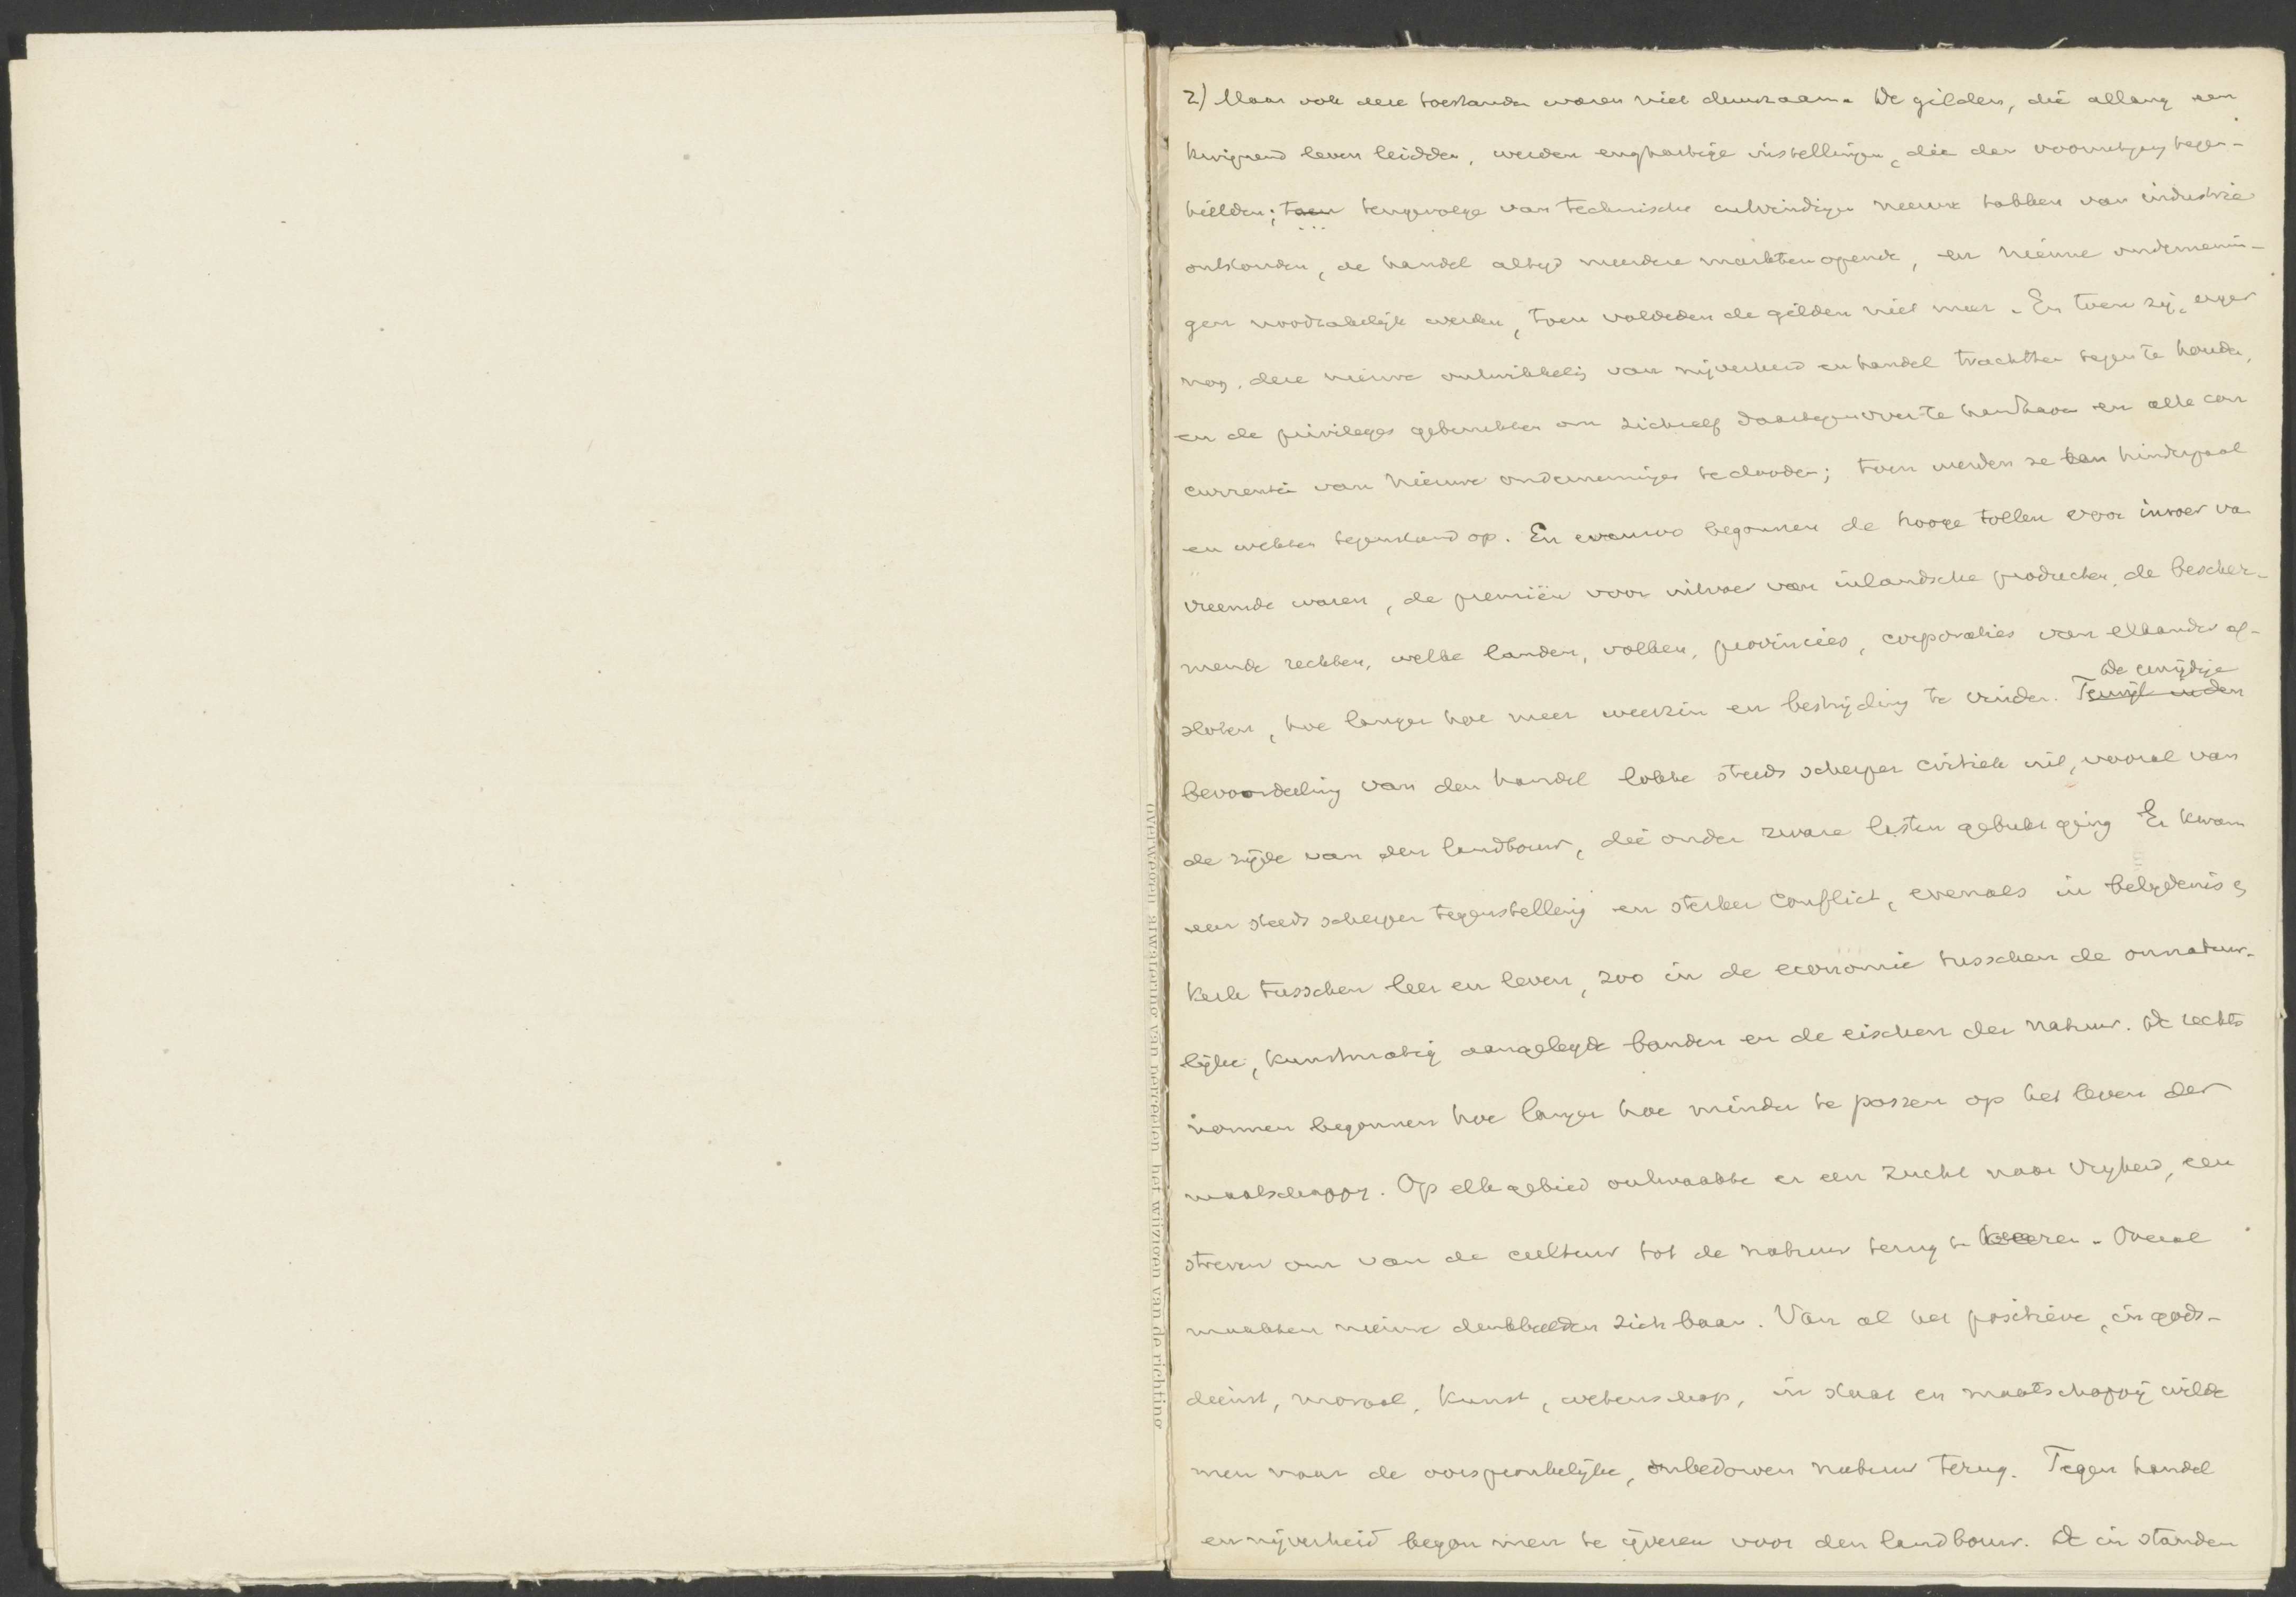 2) Maar ook deze toestanden waren niet duurzaam. De gilden, die allang een
kwijnend leven leidden, werden enghartige instellingen, die den vooruitgang tegen-
hielden; toen tengevolge van technische uitvindingen nieuwe takken van industrie
ontstonden, de handel altijd meerdere markten opende, en nieuwe ondernemin-
gen noodzakelijk werden, toen voldeden de gilden niet meer. En toen zij, erger
nog, deze nieuwe ontwikkeling van nijverheid en handel trachtten tegen te houden,
en de privileges gebruikten om zichzelf daartegenover te handhaven en alle con
currentie van nieuwe ondernemingen te dooden; toen werden ze een hinderpaal
en wekten tegenstand op. En evenzoo begonnen de hooge tollen voor invoer van
vreemde waren, de premiën voor uitvoer van inlandsche producten, de bescher-
mende rechten, welke landen, volken, provincies, corporaties van elkander af-
De eenzijdige
sloten, hoe langer hoe meer weerzin en bestrijding te vinden. Terwijl in den
bevoordeeling van den handel lokte steeds scherper critiek uit, vooral van
de zijde van den landbouw, die onder zware lasten gebukt ging. Er kwam
een steeds scherper tegenstelling en sterker conflict, evenals in belijdenis en
kerk tusschen leer en leven, zoo in de economie tusschen de onnatuur-
lijke, kunstmatig aangelegde banden en de eischen der natuur. De rechts
normen begonnen hoe langer hoe minder te passen op het leven der
maatschappij. Op elk gebied ontwaakte er een zucht naar vrijheid, een
streven om van de cultuur tot de natuur terug te keeren. Overal
maakten nieuwe denkbeelden zich baan. Van al het positieve, in gods-
dienst, moraal, kunst, wetenschap, in staat en maatschappij wilde
men naar de oorspronkelijke, onbedorven natuur terug. Tegen handel
en nijverheid begon men te ijveren voor den landbouw. De in standen
overwegen afwatering van perceelen het wijzigen van de richting